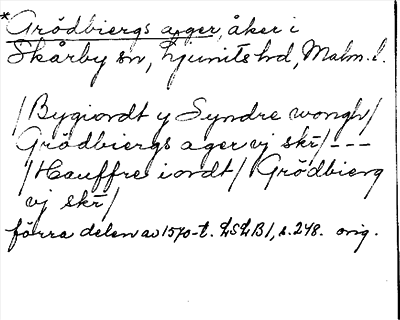 *Grödbiergs ager, åker i
Skårby sn, Ljunits hd, Malm. l.
/Bygiordt y Syndre wongh/
Grödbiergs ager vj skr/---
/Hauffre iordt/ Grödbierg
vj skr/
förra delen av 1570-t. LSLB1, s. 248. orig.